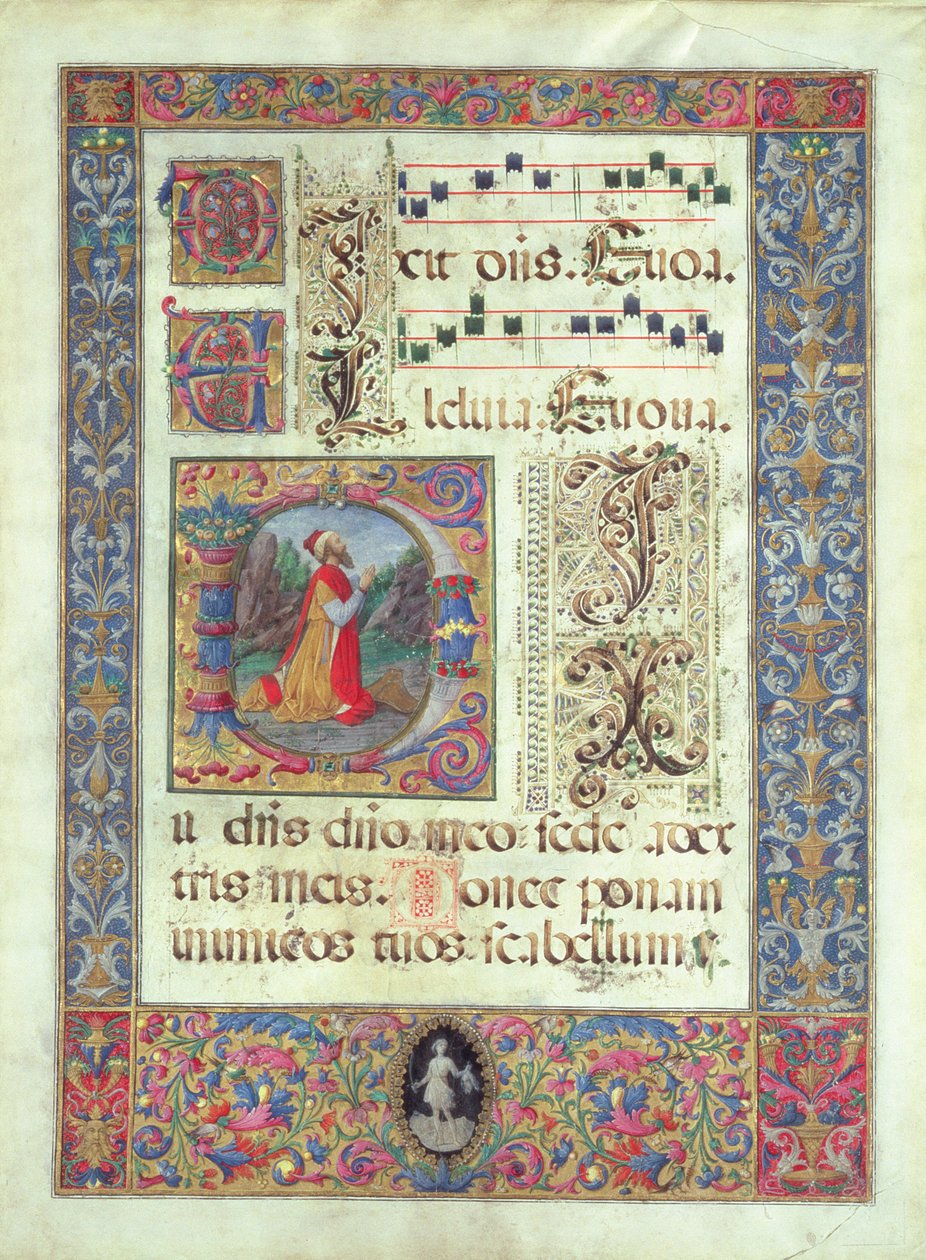 DIxit dñs. Euoa.
ALleluia: Euoua.
DIX
it dñs dño meo: sede adex
tris meis. Donec ponam
inimicos tuos: scabellum